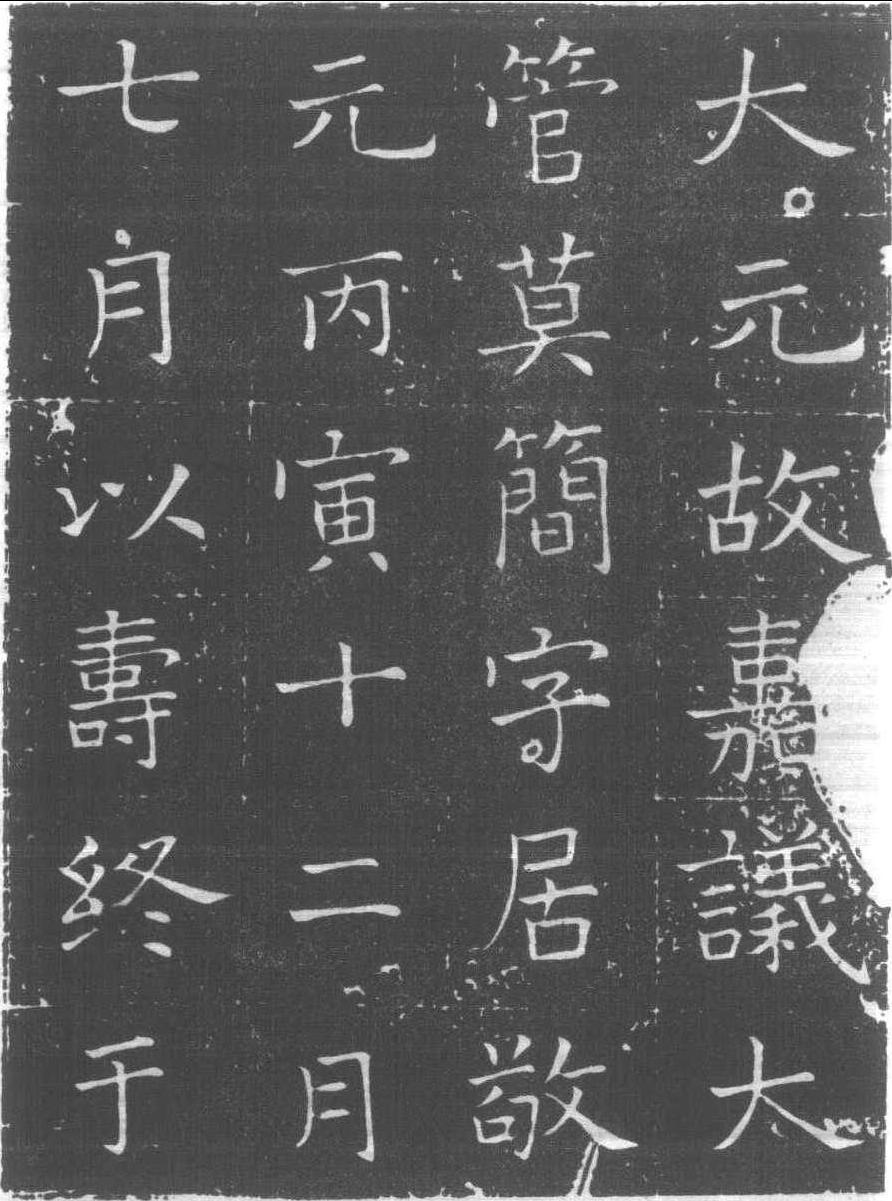 大元故嘉議大
管莫簡字居敬
元丙寅十二月
七月以壽終于